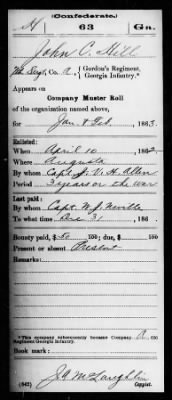 (Confederate.)
H 63 Ga.
John C. Hill
Sergt., Co. A, Gordon's Regiment,
Georgia Infantry.*
Appears on
Company Muster Roll
of the organization named above,
for Jan. & Feb., 1863.
Enlisted:
When April 10, 186
Where Augusta
By whom Capt. J. V. H. Allen
Period 3 years or the war
Last paid:
By whom Capt. W. J. Neville
To what time Dec 31, 186
Bounty paid, $50 100; due $ 100
Present or absent Present
Remarks:
*This company subsequently became Company A, 63d
Regiment Georgia Infantry.
Book mark:
J. A. McLaughlin
(642) Copyist.